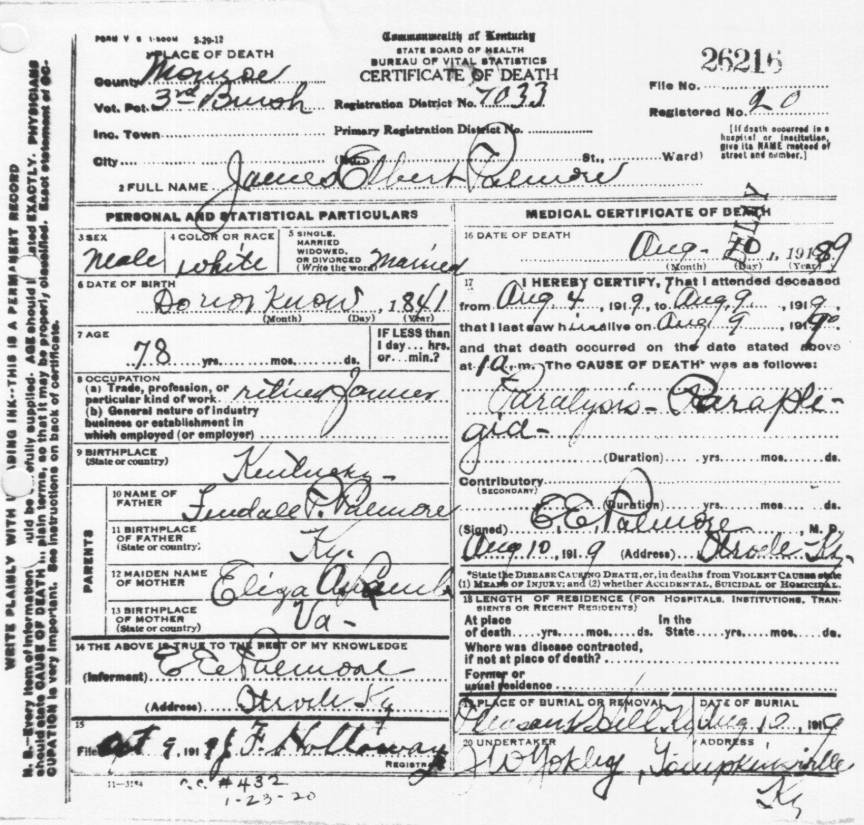 FORM V S 1-500M 2-29-12
Commonwealth of Kentucky
STATE BOARD OF HEALTH
BUREAU OF VITAL STATISTICS
CERTIFICATE OF DEATH
PLACE OF DEATH
County Monroe
Vot. Pct. 3rd Brush
Inc. Town
City
Registration District No. 7033
Primary Registration District No.
(No. St., Ward)
26216
File No.
Registered No. 20
[If death occurred in a
hospital or institution,
give its NAME instead of
street and number.]
2 FULL NAME James Elbert Palmore
PERSONAL AND STATISTICAL PARTICULARS
3 SEX
Male
4 COLOR OR RACE
white
5 SINGLE,
MARRIED
WIDOWED,
OR DIVORCED
(Write the word) Married
6 DATE OF BIRTH
Do not Know, 1841
(Month) (Day) (Year)
7 AGE
78 yrs. mos. ds.
IF LESS than
1 day... hrs.
or... min.?
8 OCCUPATION
(a) Trade, profession, or
particular kind of work retired Farmer
(b) General nature of industry
business or establishment in
which employed (or employer)
9 BIRTHPLACE
(State or country) Kentucky
PARENTS
10 NAME OF
FATHER
P. Palmore
11 BIRTHPLACE
OF FATHER
(State or country) Ky.
12 MAIDEN NAME
OF MOTHER Eliza
13 BIRTHPLACE
OF MOTHER
(State or country) Va-
14 THE ABOVE IS TRUE TO THE BEST OF MY KNOWLEDGE
(Informant) E E Palmore
(Address) Strode Ky
15
Filed Oct 9, 1919 J F. Holloway
REGISTRAR
11-3184
C.C. # 432
1-23-20
MEDICAL CERTIFICATE OF DEATH
16 DATE OF DEATH
Aug- 10, 1919
(Month) (Day) (Year)
17 I HEREBY CERTIFY, That I attended deceased
from Aug 4, 1919, to Aug 9, 1919,
that I last saw him alive on Aug 9, 1919
and that death occurred on the date stated above
at 1 a. m. The CAUSE OF DEATH* was as follows:
Paralysis- Paraple-
gia-
(Duration) yrs. mos. ds.
Contributory
(SECONDARY)
(Duration) yrs. mos. ds.
(Signed) E.E. Palmore, M. D.
Aug 10, 1919 (Address) Strode Ky.
*State the DISEASE CAUSING DEATH, or, in deaths from VIOLENT CAUSES state
(1) MEANS OF INJURY; and (2) whether ACCIDENTAL, SUICIDAL or HOMICIDAL.
18 LENGTH OF RESIDENCE (FOR HOSPITALS, INSTITUTIONS, TRAN-
SIENTS OR RECENT RESIDENTS)
At place In the
of death....yrs....mos....ds. State....yrs....mos....ds.
Where was disease contracted,
if not at place of death?
Former or
usual residence
19 PLACE OF BURIAL OR REMOVAL
Pleasant Hill Ky
DATE OF BURIAL
Aug 10, 1919
20 UNDERTAKER
J W Yokley
ADDRESS
Tompkinsville
Ky
WRITE PLAINLY WITH ADING INK--THIS IS A PERMANENT RECORD
N. B.--Every item of information should be carefully supplied. AGE should be stated EXACTLY. PHYSICIANS
should state CAUSE OF DEATH in plain terms, so that it may be properly classified. Exact statement of OC-
CUPATION is very important. See instructions on back of certificate.